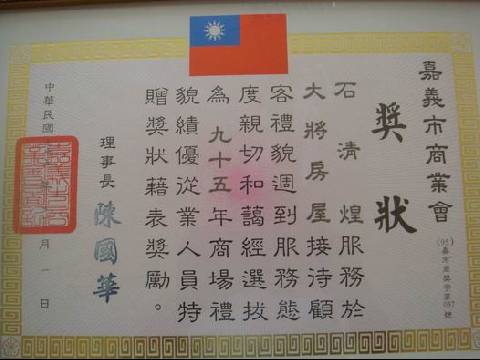 嘉義市商業會
獎狀
(95)嘉市商獎字第087號
石清煌服務於
大將房屋接待顧
客禮貌週到服務態
度親切和藹經選拔
為九十五年商場禮
貌績優從業人員特
贈獎狀藉表獎勵。
理事長 陳國華
中華民國 年 月一日